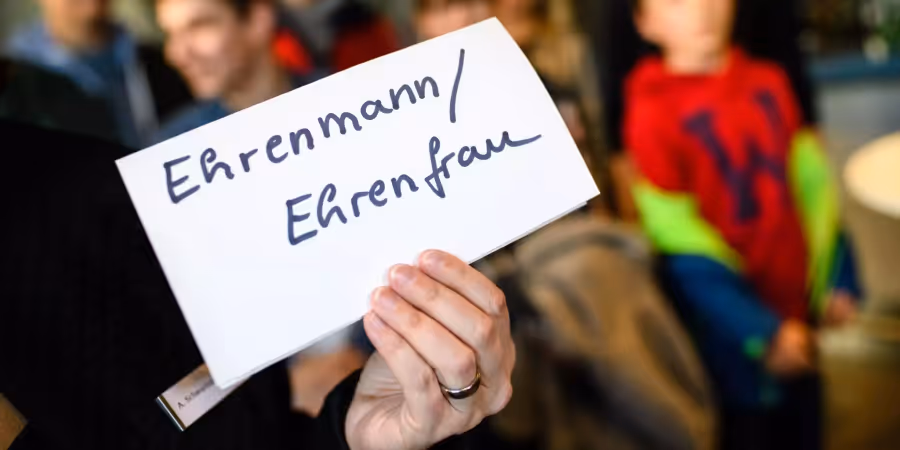 Ehrenmann/
Ehrenfrau
W